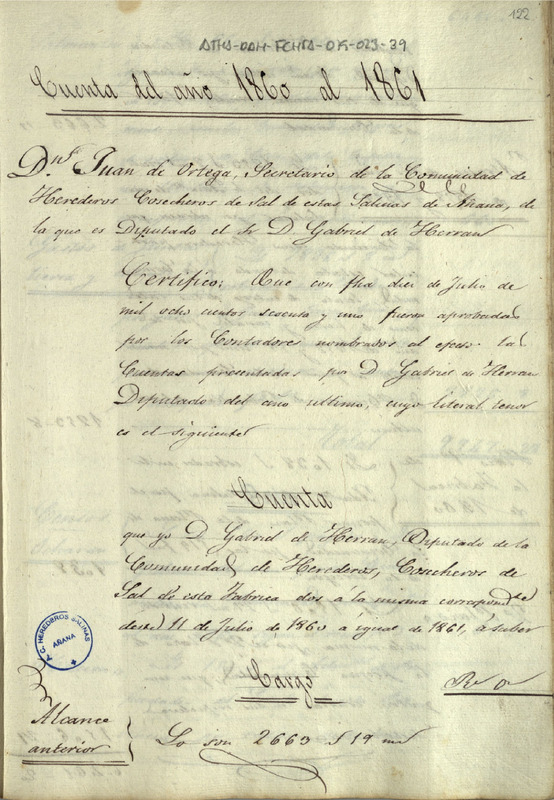 122
ATHA-DAH-FCHSA-015-023-39
Cuenta del año 1860 al 1861
Dn. Juan de Ortega, Secretario de la Comunidad de
Herederos Cosecheros de Sal de estas Salinas de Añana, de
la que es Diputado el Sr D Gabriel de Herran
Certifico; Que con fha diez de Julio de
mil ocho cientos sesenta y uno fueron aprobadas
por los Contadores nombrados al efecto las
Cuentas presentadas por D Gabriel de Herran
Diputado del año ultimo, cuyo literal tenor
es el siguiente
Cuenta
que yo D Gabriel de Herran, Diputado de la
Comunidad de Herederos, Cosecheros de
Sal de esta Fabrica dos a la misma correspondte
desde 11 de Julio de 1860 a igual de 1861, a saber
C. HEREDEROS SALINAS
AÑANA
Cargo
Rs
Alcance
anterior
Lo son 2663 19 ms